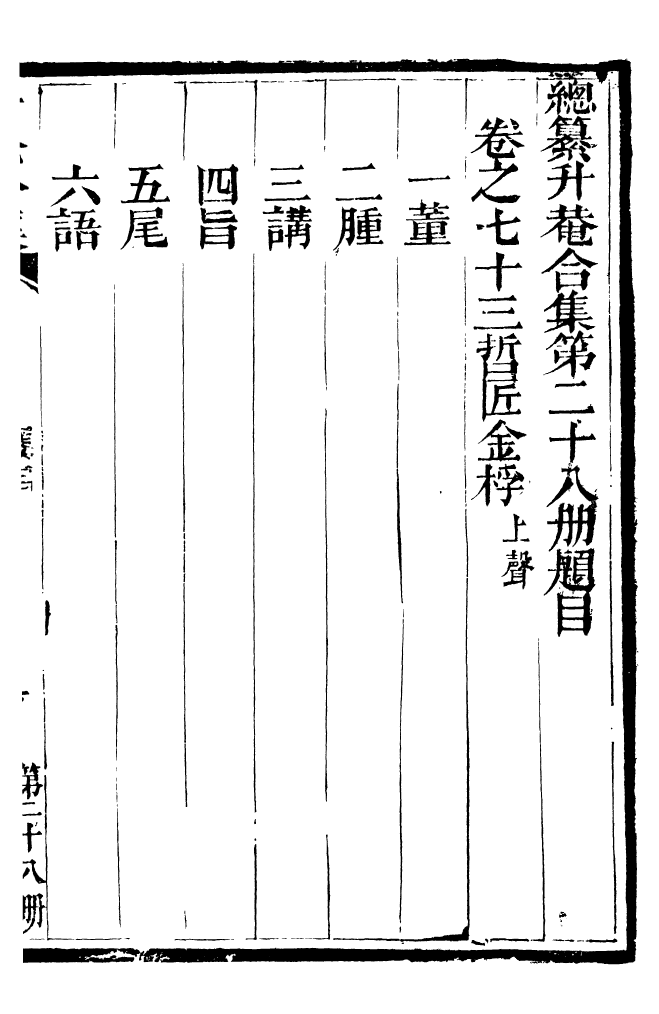 總纂升菴合集第二十八册題目
卷之七十三哲匠金桴上聲
一董
二腫
三講
四旨
五尾
六語
第二十八册